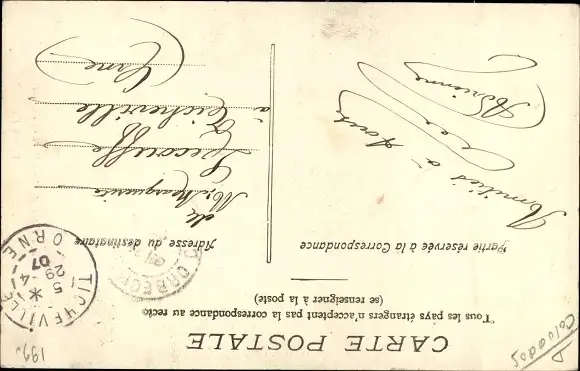 CARTE POSTALE
Tous les pays étrangers n'acceptent pas la correspondance au recto
(se renseigner à la poste)
Partie réservée à la Correspondance
Adresse du destinataire
Amitiés à
tous
Adrienne
Marguerite
Lecouffe
à Ticheville
(Orne)
TICHEVILLE
5
29-4
07
ORNE
ORBEC
Calvados